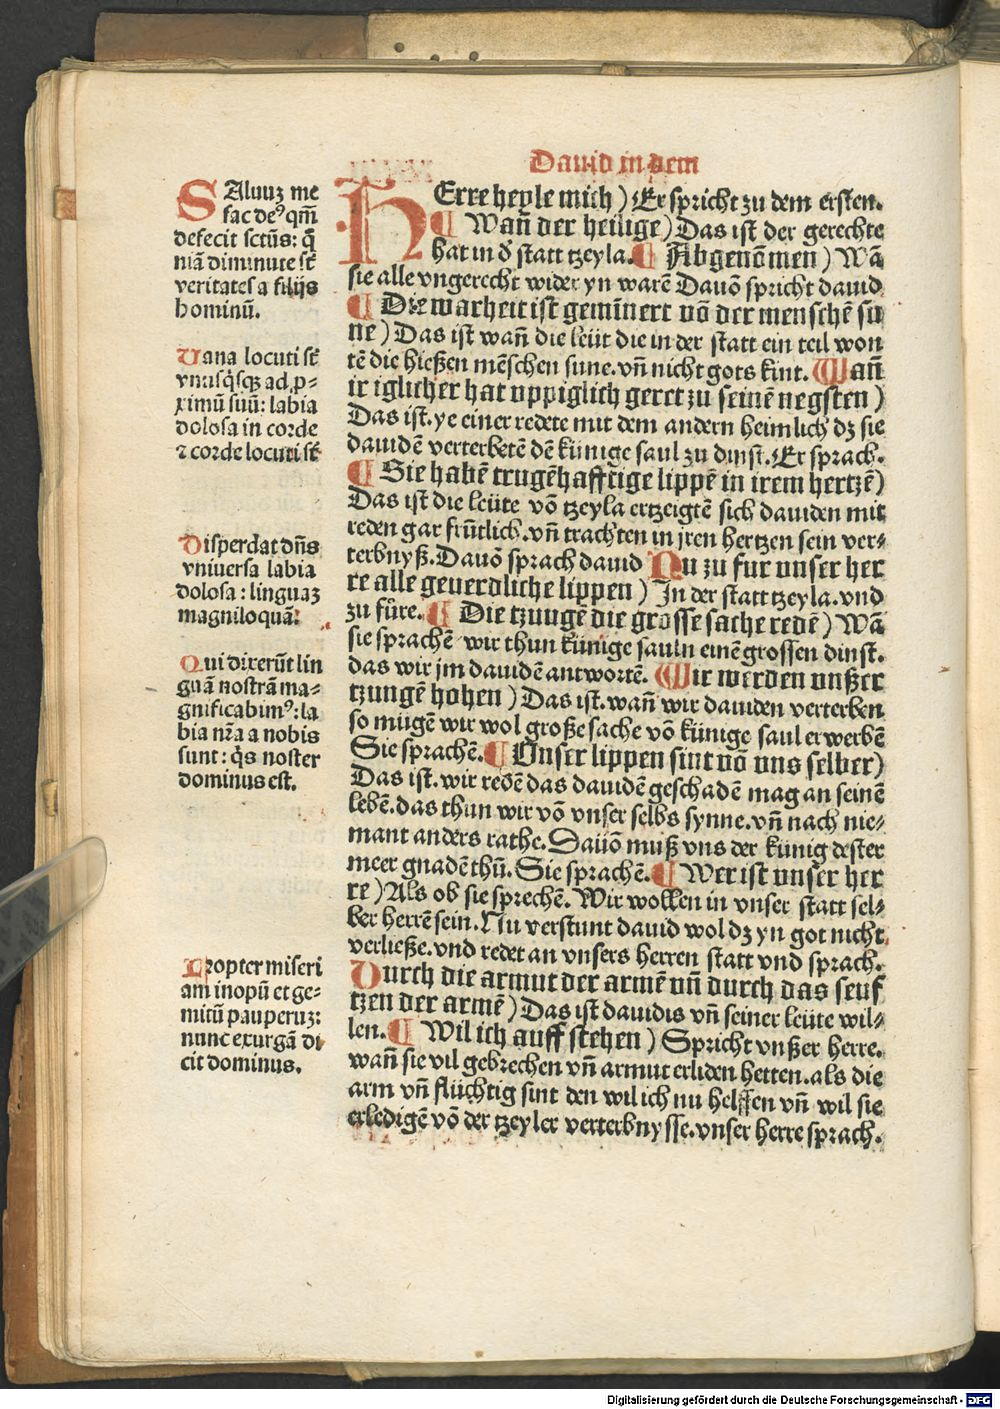 Dauid in dem
SAluuz me
fac deꝰ qm̄
defecit sctūs: q̄
niā diminute st̄
veritates a filijs
hominū.
Uana locuti st̄
vnusq̄sqꝫ ad ꝓ-
ximū suū: labia
dolosa in corde
⁊ corde locuti st̄
Disperdat dn̄s
vniuersa labia
dolosa: linguaꝫ
magniloquā:
Qui dixerūt lin
guā nostrā ma-
gnificabimꝰ: la
bia nr̄a a nobis
sunt: q̄s noster
dominus est.
Propter miseri
am inopū et ge-
mitū pauperuꝫ:
nunc exurgā di
cit dominus.
HErre heyle mich) Er spricht zu dem ersten.
¶ Wan̄ der heilige) Das ist der gerechte
hat in d̄ statt tzeyla. ¶ Abgenōmen) Wā
sie alle vngerecht wider yn warē Dauō spricht dauid
¶ Die warheit ist gemīnert vō der menschē su
ne) Das ist wan̄ die leüt die in der statt ein teil won
tē die hießen mēschen sune. vn̄ nicht gots kint. Wan̄
ir iglicher hat vppiglich geret zu seinē negsten)
Das ist. ye einer redete mit dem andern heimlich dꝫ sie
dauidē verterbetē dē künige saul zu dinst. Er sprach.
¶ Sie habē trugēhafftige lippē in irem hertzē)
Das ist die leüte vō tzeyla ertzeigtē sich dauiden mit
reden gar frūtlich. vn̄ trachten in jren hertzen sein ver-
terbnyß. Dauō sprach dauid Nu zu fur vnser her
re alle geuerdliche lippen) In der statt tzeyla. vnd
zu fůre. ¶ Die tzungē die grosse sache redē) Wā
sie sprachē wir thun künige sauln einē grossen dinst.
das wir jm dauidē antwortē. Wir werden vnßer
tzungē hohen) Das ist. wan̄ wir dauiden verterben
so mügē wir wol große sache vō künige saul erwerbē
Sie sprachē. ¶ Vnser lippen sint vō vns selber)
Das ist. wir redē das dauidē geschadē mag an seinē
lebē. das thun wir vō vnser selbs synne. vn̄ nach nie-
mant anders rathe. Dauō muß vns der künig dester
meer gnadē thū. Sie sprachē. ¶ Wer ist vnser her
re) Als ob sie sprechē. Wir wollen in vnser statt sel-
ber herrē sein. Nu verstunt dauid wol dꝫ yn got nicht
verließe. vnd redet an vnsers herren statt vnd sprach.
Durch die armut der armē vn̄ durch das seuf
tzen der armē) Das ist dauidis vn̄ seiner leüte wil-
len. ¶ Wil ich auff stehen) Spricht vnßer herre.
wan̄ sie vil gebrechen vn̄ armut erliden hetten. als die
arm vn̄ flüchtig sint den wil ich nu helffen vn̄ wil sie
erledigē vō der tzeyler verterbnysse. vnser herre sprach.
Digitalisierung gefördert durch die Deutsche Forschungsgemeinschaft - DFG